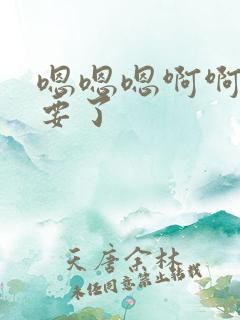 嗯嗯嗯啊啊
要了
天唐余林
未经同意禁止转载